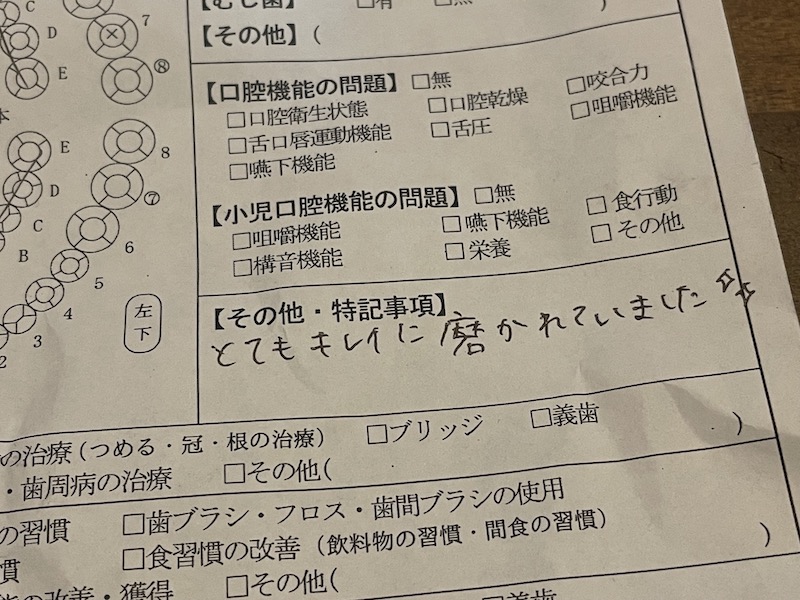 【むし歯】 □有 □無 )
C
D
7
【その他】(
E
⑧
【口腔機能の問題】 □無
□口腔衛生状態 □口腔乾燥 □咬合力
□舌口唇運動機能 □舌圧 □咀嚼機能
□嚥下機能
E
8
D
⑦
【小児口腔機能の問題】 □無
□咀嚼機能 □嚥下機能 □食行動
□構音機能 □栄養 □その他
C
6
B
5
4
3
2
左下
【その他・特記事項】
とてもキレイに磨かれていました☆☆
の治療(つめる・冠・根の治療) □ブリッジ □義歯
・歯周病の治療 □その他( )
の習慣 □歯ブラシ・フロス・歯間ブラシの使用
慣 □食習慣の改善(飲料物の習慣・間食の習慣)
の改善・獲得 □その他( )
□義歯